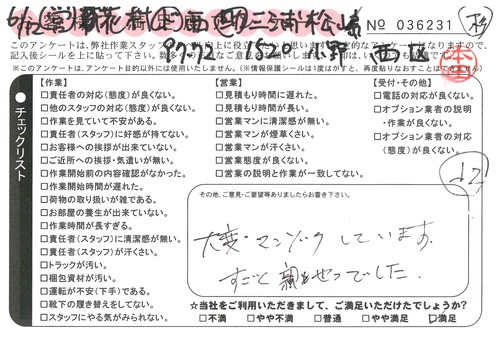 № 036231
このアンケートは、弊社作業スタッフ
記入後シールを上に貼って下さい。
※このアンケートは、アンケート目的以外には使用いたしません。(※情報保護シールは1度はがすと、再度貼りなおすことはできません)
チェックリスト
【作業】
□責任者の対応(態度)が良くない。
□他のスタッフの対応(態度)が良くない。
□作業を見ていて不安がある。
□責任者(スタッフ)に好感が持てない。
□お客様への挨拶が出来ていない。
□ご近所への挨拶・気遣いが無い。
□作業開始前の内容確認がなかった。
□作業開始時間が遅れた。
□荷物の取り扱いが雑である。
□お部屋の養生が出来ていない。
□作業時間が長すぎる。
□責任者(スタッフ)に清潔感が無い。
□責任者(スタッフ)が汗くさい。
□トラックが汚い。
□梱包資材が汚い。
□運転が不安(下手)である。
□靴下の履き替えをしてない。
□スタッフにやる気がみられない。
【営業】
□見積もり時間に遅れた。
□見積もり時間が長い。
□営業マンに清潔感が無い。
□営業マンが煙草くさい。
□営業マンが汗くさい。
□営業態度が良くない。
□営業の説明と作業が一致してない。
【受付・その他】
□電話の対応が良くない。
□オプション業者の説明
・作業が良くない。
□オプション業者の対応
(態度)が良くない。
その他、ご意見・ご要望等ありましたらお書き下さい。
大変・マンゾクしています。
すごく親せつでした。
☆当社をご利用いただきまして、ご満足いただけたでしょうか?
□不満 □やや不満 □普通 □やや満足 ☑満足